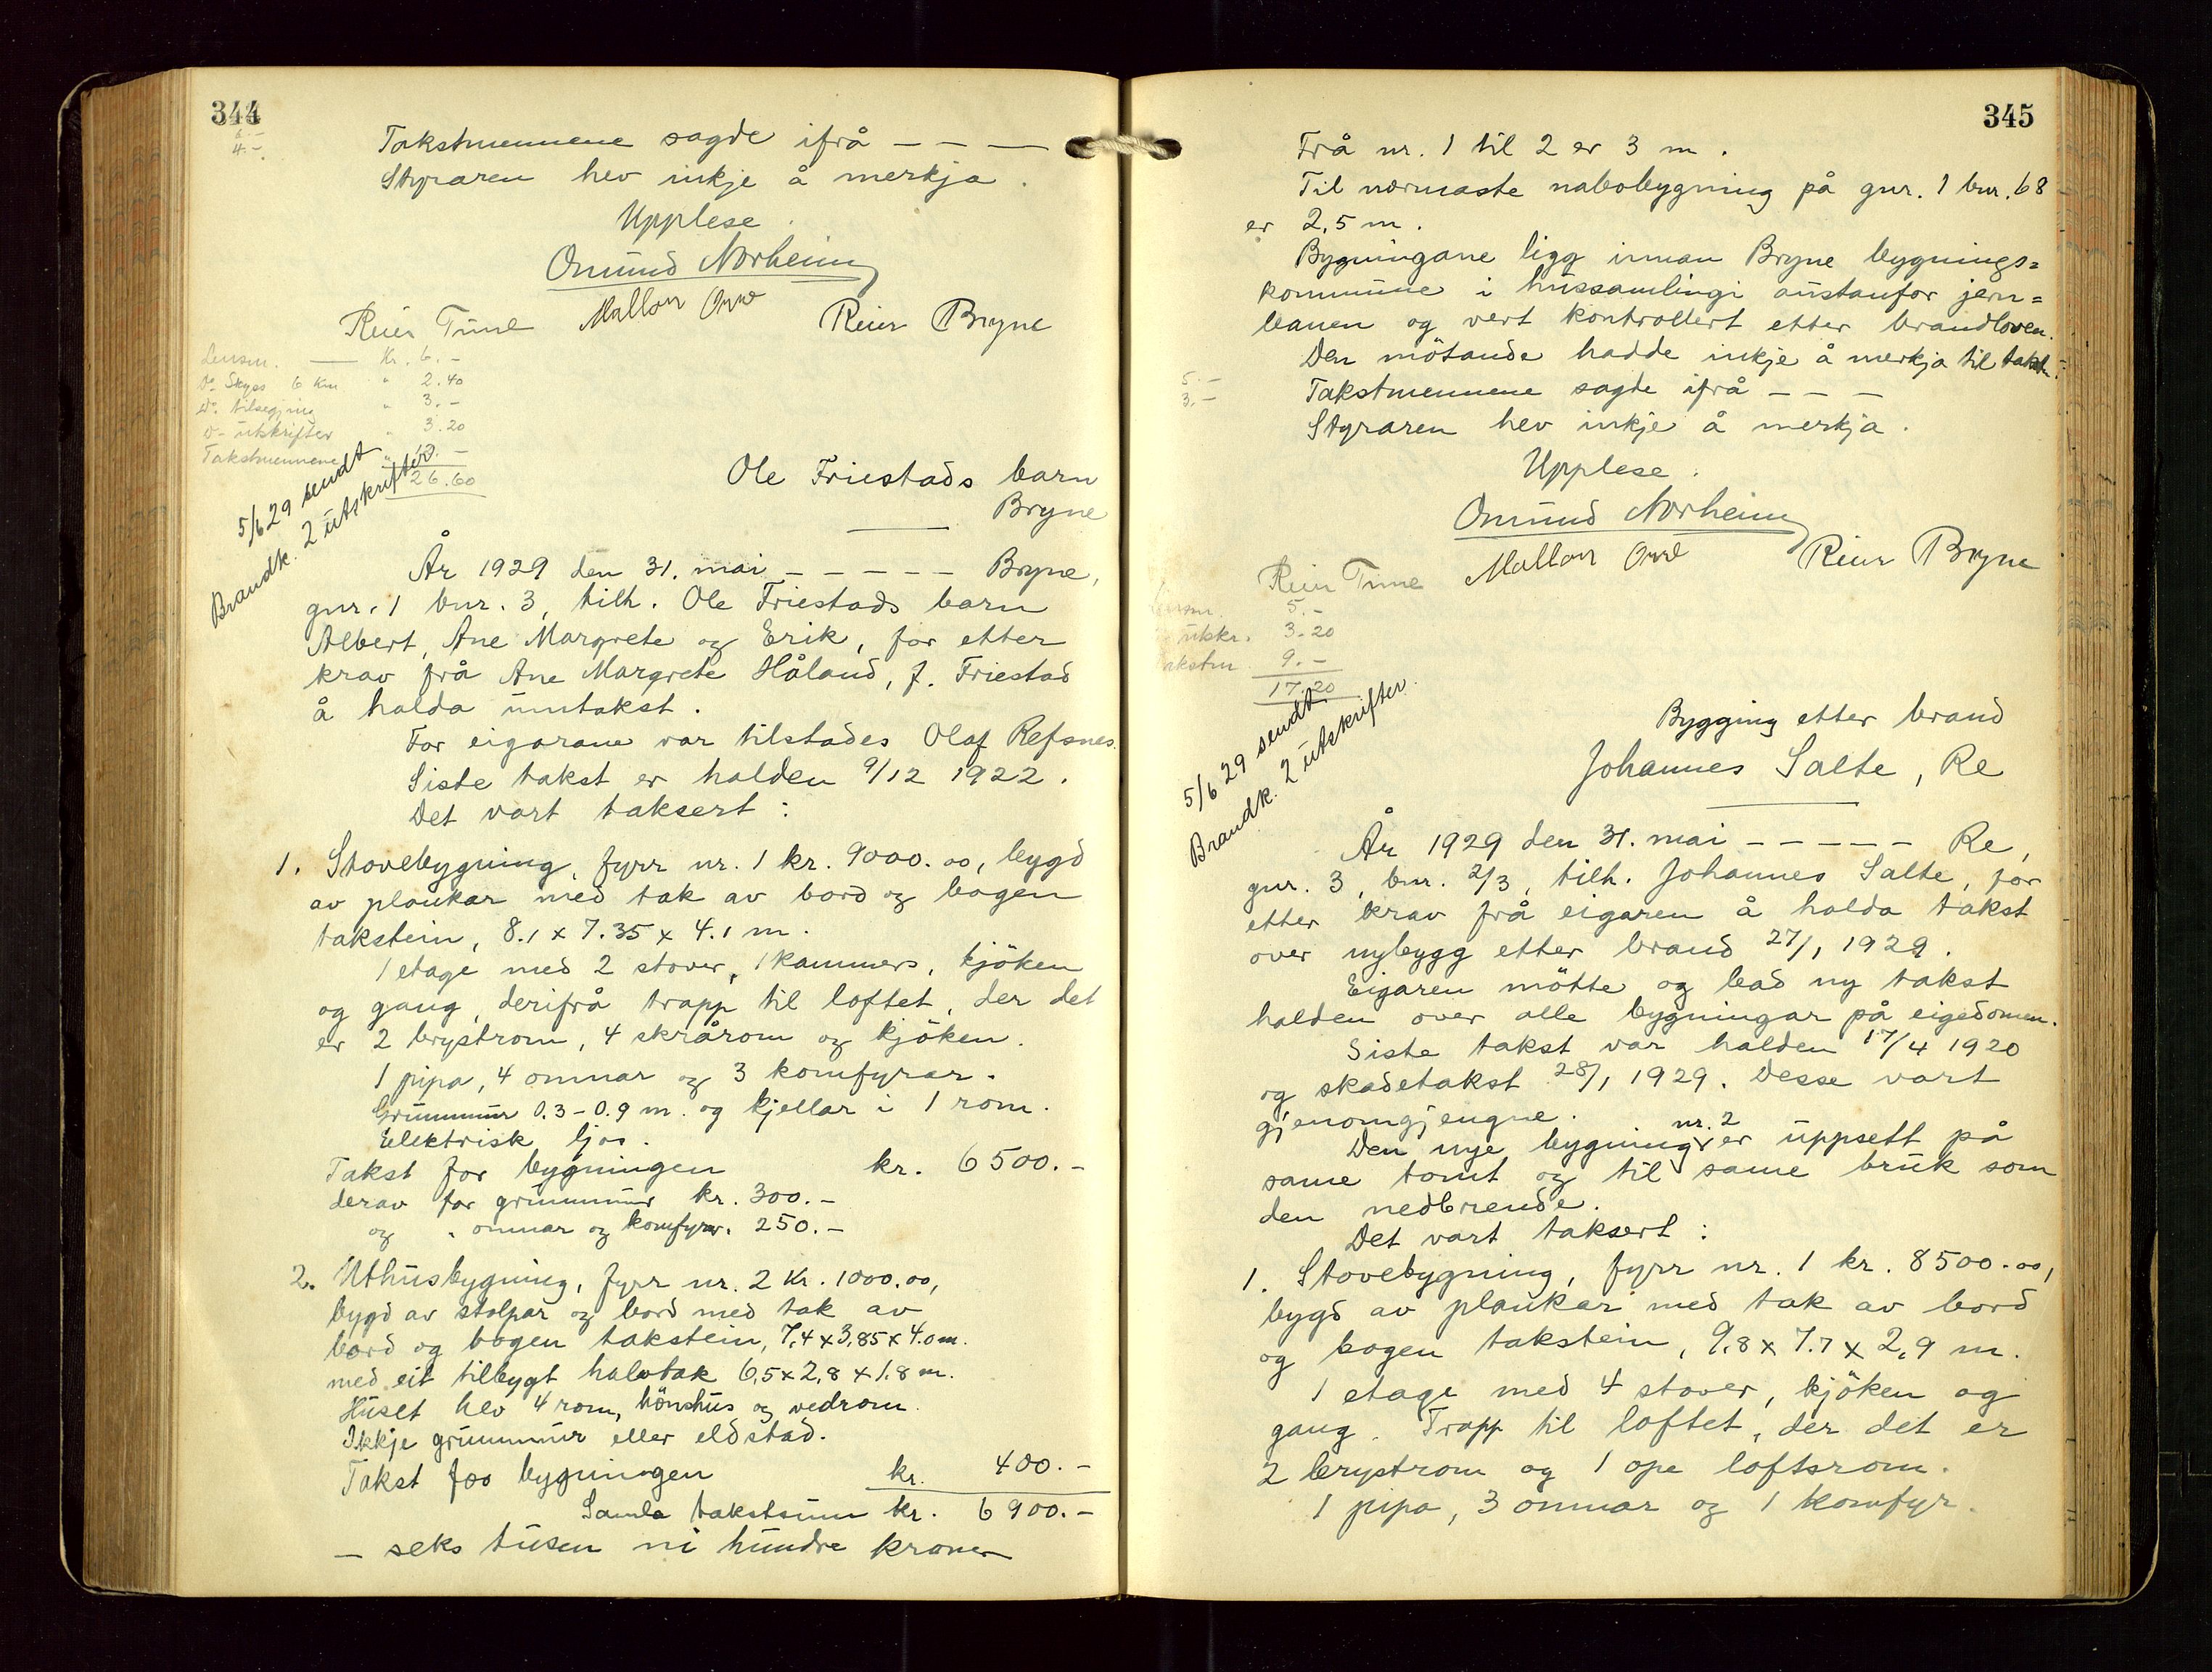 344
6.-
4.-
Takstmennene sagde ifrå – – –
Styraren hev inkje å merkja.
Upplese.
Omund Norheim
Reier Time Mallon Orre Reier Bryne
Lensm. — Kr. 6.-
Do Skyss 6 km " 2.40
Do tilsegjing " 3.-
Do utskrifter " 3.20
Takstmennene " 12.-
26.60
5/6 29 sendt
Brandk. 2 utskrifter
Ole Friestads barn
Bryne
År 1929 den 31. mai – – – – – Bryne,
gnr. 1 bnr. 3, tilh. Ole Friestads barn
Albert, Ane Margrete og Erik, for etter
krav frå Ane Margrete Håland, f. Friestad
å halda umtakst.
For eigarane var tilstades Olaf Refsnes.
Siste takst er halden 9/12 1922.
Det vart taksert:
1. Stovebygning, fyrr nr. 1 kr. 9000.00, bygd
av plankar med tak av bord og bogen
takstein, 8.1 x 7.35 x 4.1 m.
1 etage med 2 stover, 1 kammers, kjöken
og gang, derifrå trapp til loftet, der det
er 2 brystrom, 4 skrårom og kjöken.
1 pipa, 4 omnar og 3 komfyrar.
Grunnmur 0.3-0.9 m. og kjellar i 1 rom.
Elektrisk ljos.
Takst for bygningen kr. 6500.-
derav for grunnmur kr. 300.-
og " omnar og komfyrar " 250.-
2. Uthusbygning, fyrr nr. 2 kr. 1000.00,
bygd av stolpar og bord med tak av
bord og bogen takstein, 7,4 x 3,85 x 4.0 m.
med eit tilbygt halvtak 6,5 x 2,8 x 1.8 m.
Huset hev 4 rom, hönshus og vedrom.
Ikkje grunnmur eller eldstad.
Takst for bygningen kr. 400.-
Samla takstsum kr. 6900.-
– seks tusen ni hundre kroner
345
Frå nr. 1 til 2 er 3 m.
Til nærmaste nabobygning på gnr. 1 bnr. 68
er 2,5 m.
Bygningane ligg innan Bryne bygnings=
kommune i hussamlingi austanfor jern=
banen og vert kontrollert etter brandloven.
Den mötande hadde inkje å merkja til taksten.
5.-
3.-
Takstmennene sagde ifrå – – –
Styraren hev inkje å merkja.
Upplese.
Omund Norheim
Reier Time Mallon Orre Reier Bryne
Lensm. 5.-
utskr. 3.20
Takstm. 9.-
17.20
5/6 29 sendt
Brandk. 2 utskrifter.
Bygging etter brand
Johannes Salte, Re
År 1929 den 31. mai – – – – – Re,
gnr. 3, bnr. 2/3, tilh. Johannes Salte, for
etter krav frå eigaren å halda takst
over nybygg etter brand 27/1 1929.
Eigaren mötte og bad ny takst
halden over alle bygningar på eigedomen.
Siste takst var halden 17/4 1920
og skadetakst 28/1 1929. Desse vart
gjenomgjengne.
Den nye bygning nr. 2 er uppsett på
same tomt og til same bruk som
den nedbrende.
Det vart taksert:
1. Stovebygning, fyrr nr. 1 kr. 8500.00,
bygd av plankar med tak av bord
og bogen takstein, 9,8 x 7.7 x 2,9 m.
1 etage med 4 stover, kjöken og
gang. Trapp til loftet, der det er
2 brystrom og 1 ope loftsrom.
1 pipa, 3 omnar og 1 komfyr.